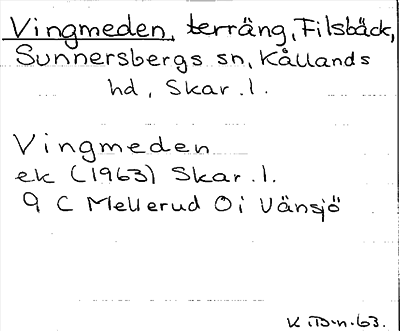 Vingmeden, terräng, Filsbäck,
Sunnersbergs sn, Kållands
hd, Skar. l.
Vingmeden
ek (1963) Skar. l.
9 C Mellerud Ö i Vänsjö